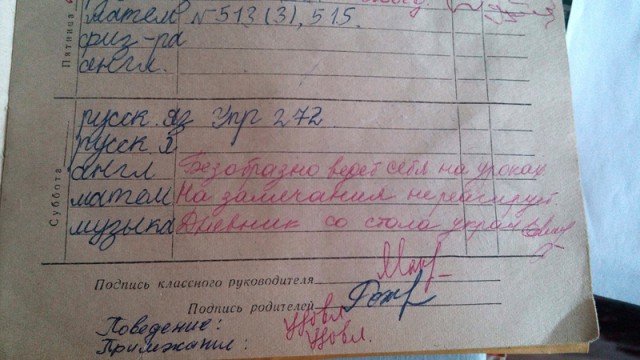 Пятница
матем № 513 (3), 515.
физ-ра
англ.
Суббота
русск. яз Упр 272
русск я
англ Безобразно ведет себя на уроках
матем На замечания не реагирует
музыка Дневник со стола украл
Подпись классного руководителя
Подпись родителей
Поведение: Удовл.
Прилежание: Удовл.